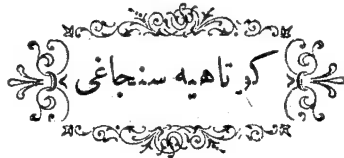 كوتاهيه سنجاغى